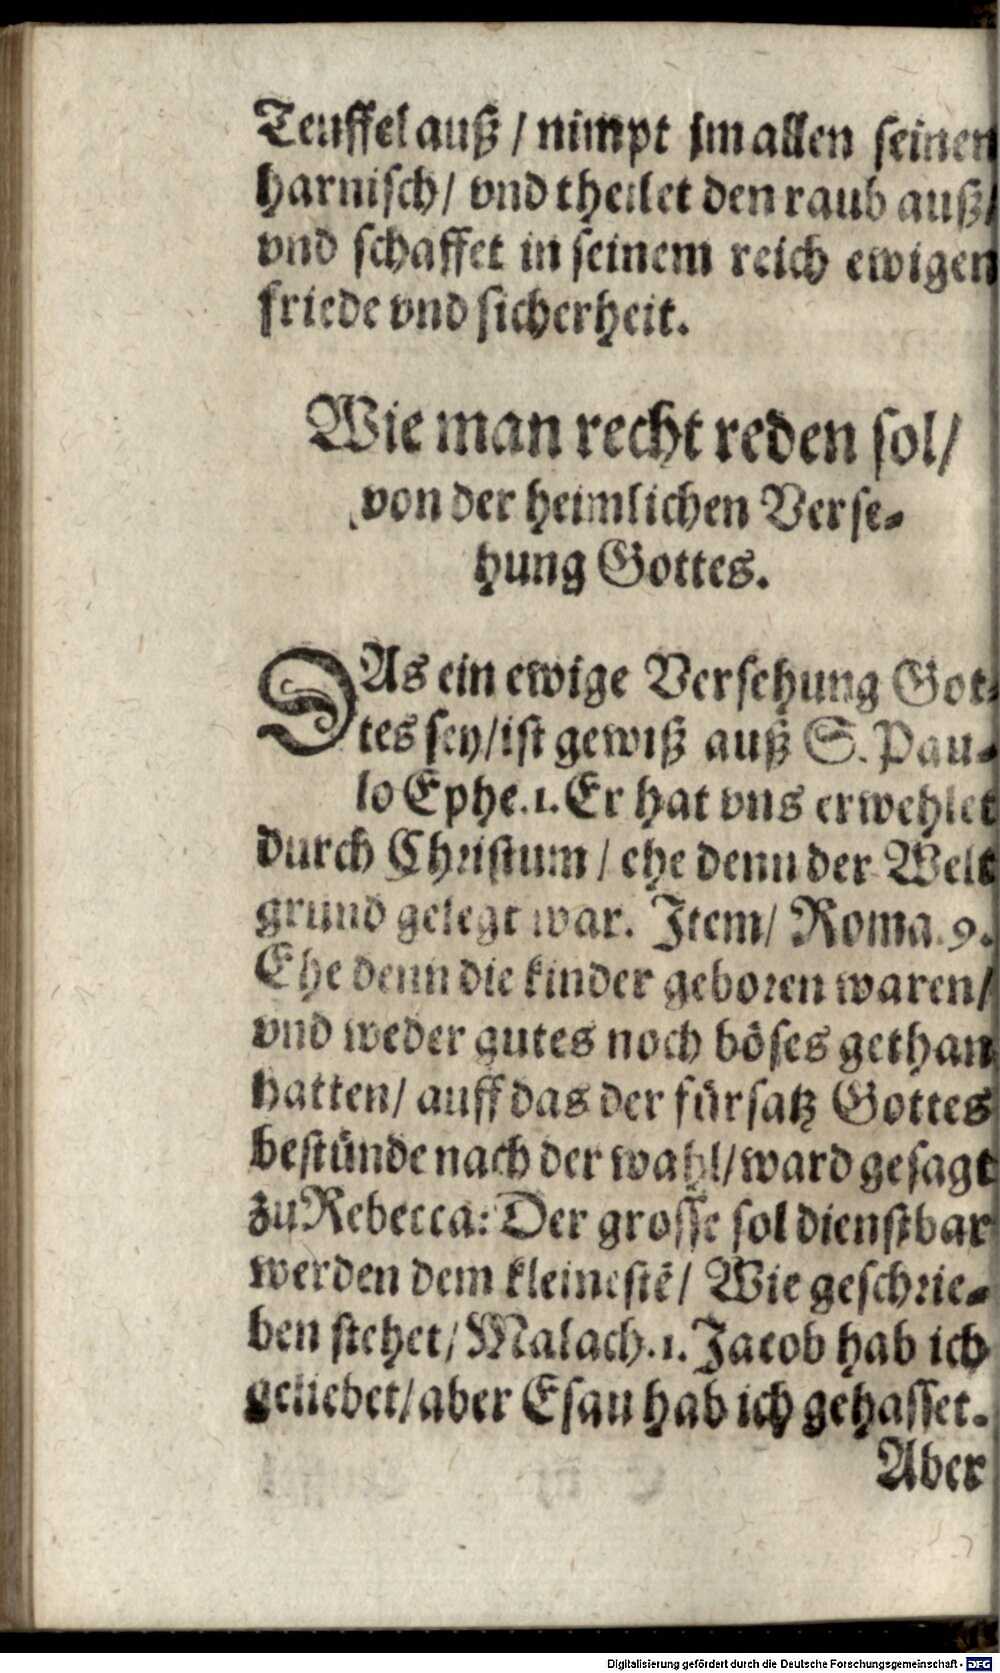 Teuffel auß / nimpt jm allen seinen
harnisch / vnd theilet den raub auß /
vnd schaffet in seinem reich ewigen
friede vnd sicherheit.
Wie man recht reden sol /
von der heimlichen Verse-
hung Gottes.
DAs ein ewige Versehung Got-
tes sey / ist gewiß auß S. Pau-
lo Ephe. 1. Er hat vns erwehlet
durch Christum / ehe denn der Welt
grund gelegt war. Item / Roma. 9.
Ehe denn die kinder geboren waren /
vnd weder gutes noch böses gethan
hatten / auff das der fürsatz Gottes
bestünde nach der wahl / ward gesagt
zu Rebecca: Der grosse sol dienstbar
werden dem kleinestē / Wie geschrie-
ben stehet / Malach. 1. Jacob hab ich
geliebet / aber Esau hab ich gehasset.
Aber
Digitalisierung gefördert durch die Deutsche Forschungsgemeinschaft - DFG